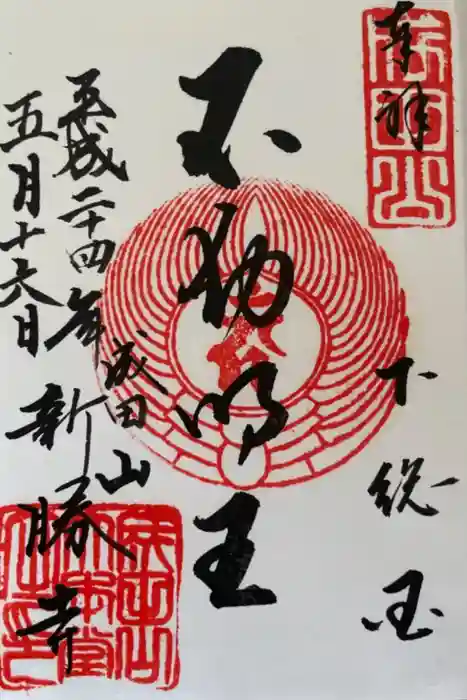 奉拝
下総国
不動明王
成田山
新勝寺
平成二十四年
五月十六日